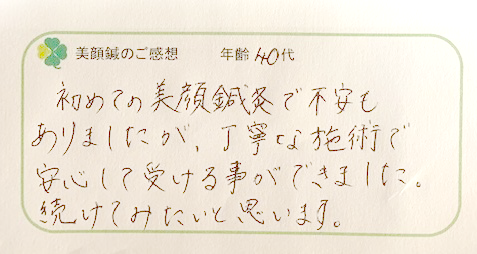 美顔鍼のご感想 年齢 40代
初めての美顔鍼灸で不安も
ありましたが、丁寧な施術で
安心して受ける事ができました。
続けてみたいと思います。